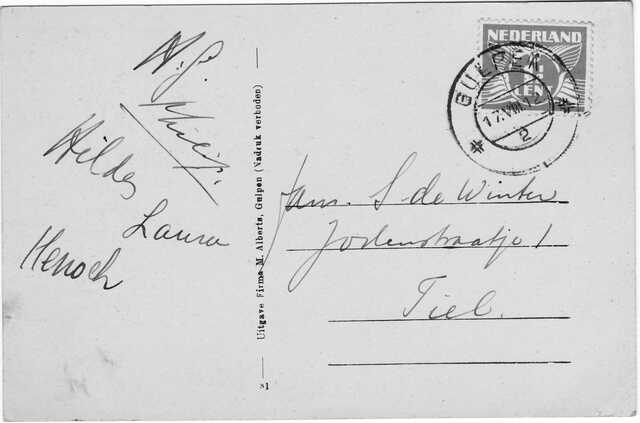 H.G.
Philips.
Hilde
Laura
Henoch
Uitgave Firma M. Alberts, Gulpen (Nadruk verboden)
x1
NEDERLAND
CENT
GULPEN
17.VIII.12
2
Fam. S de Winter
Jodenstraatje 1
Tiel.